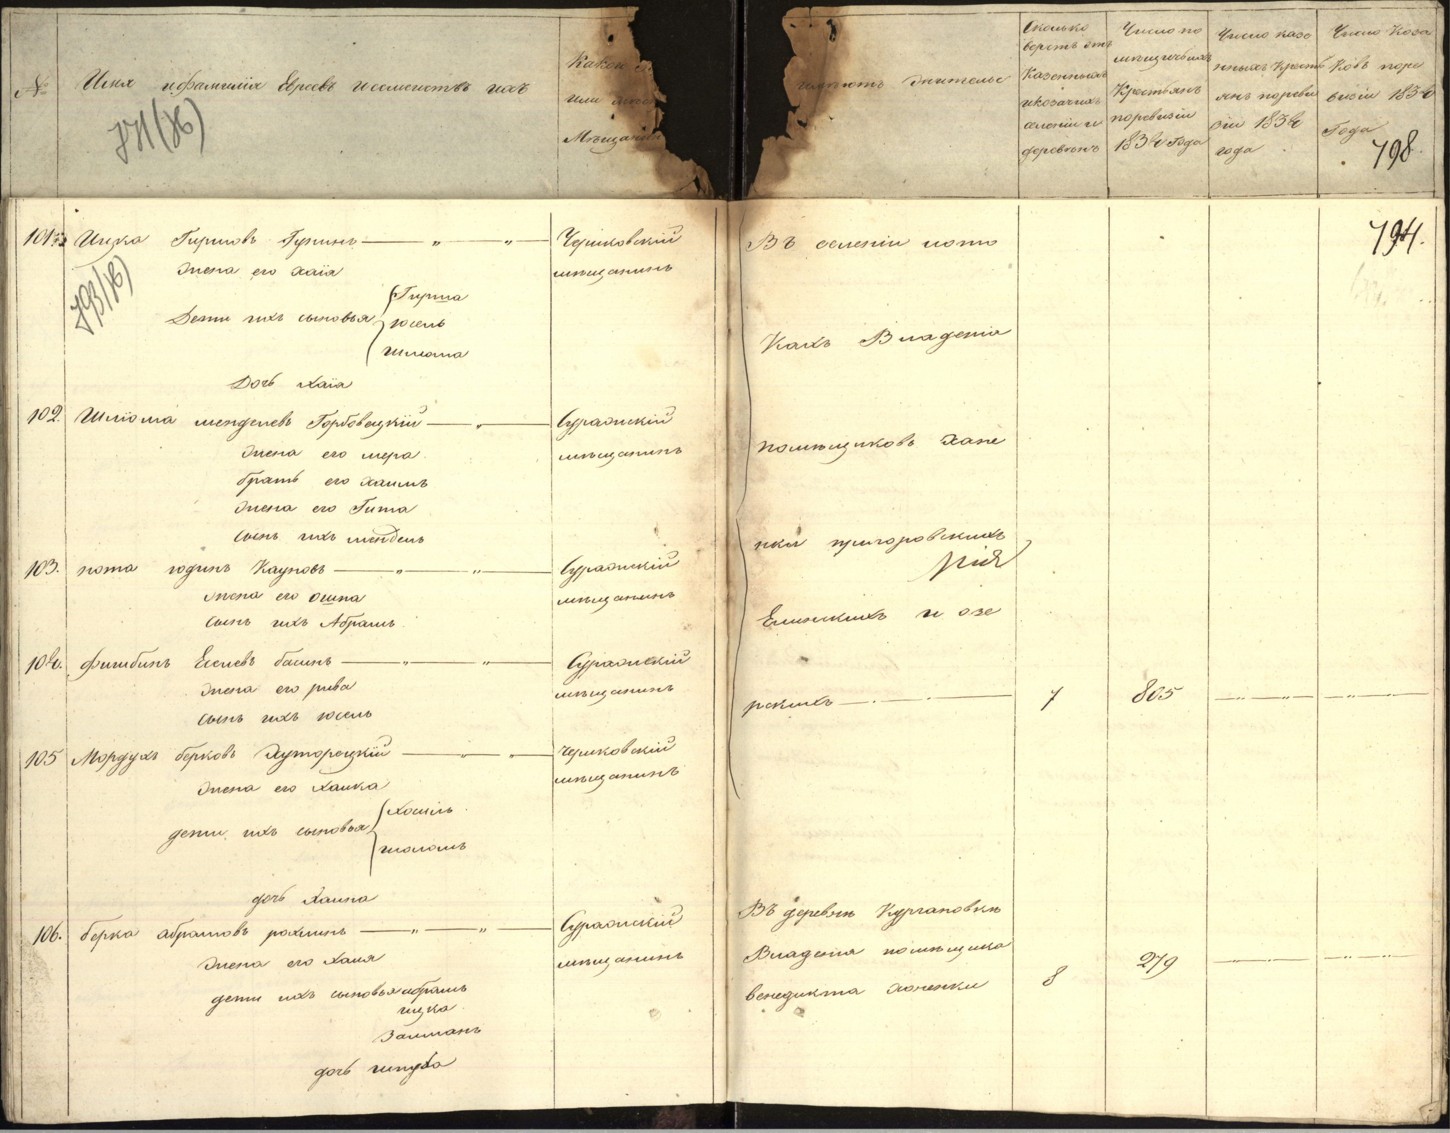 №
Имя и фамилія Евреевъ и семействъ ихъ
771 (об)
Какой
или
Мѣщани
имѣютъ жительс
Сколько
верстъ отъ
Казенныхъ
и козачихъ
селеніи и
деревень
Число по
мѣщичьихъ
Крестьянъ
по ревизіи
1834 Года
Число казе
нныхъ Кресть
янъ по реви
зіи 1834
года
Число Коза
ковъ по ре
визіи 1834
Года
798
101
Ицка Гиршовъ
Чериковскій
мѣщанинъ
жена его хаія
793 (об)
Дети ихъ сыновья
Гирша
Іосель
шлиома
Дочь хаія
102.
Шліома менделевъ Горбовецкій
Суражскій
мѣщанинъ
жена его мера
братъ его хаимъ
жена его Гита
сынъ ихъ мендель
103.
нота годинъ Кауновъ
Суражскій
мѣщанинъ
жена его
сынъ ихъ Абрамъ
104.
фишбинъ басинъ
Суражскій
мѣщанинъ
жена его рива
сынъ ихъ Іосель
105
Мордухъ берковъ Хуторецкій
Чериковскій
мѣщанинъ
жена его Хашка
дети ихъ сыновья
шоломъ
дочь
106.
берка абрамовъ рохлинъ
Суражскій
мѣщанинъ
жена его Хая
дети ихъ сыновья абрамъ
ицка
Залманъ
дочь
794.
Въ селеніи
Кахъ Владенія
помѣщиковъ Хане
нки
Елинскихъ и озе
рскихъ 7 805
Въ деревнѣ Кургановкѣ
Владенія помѣщика
венедикта Хоненки 8 279